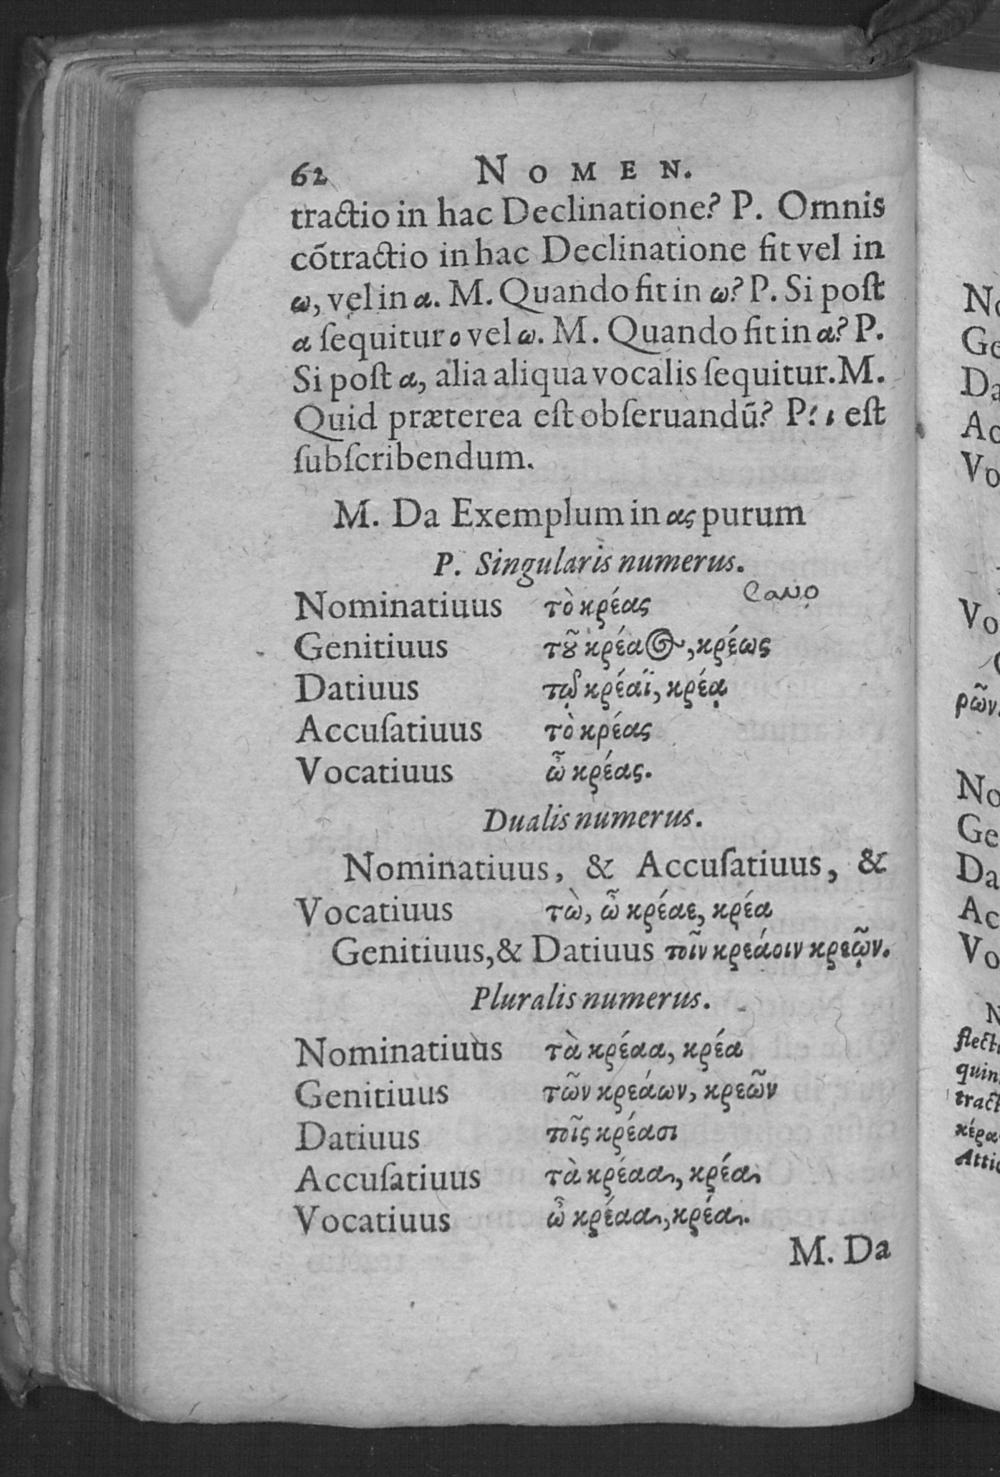 62 NOMEN.
tractio in hac Declinatione? P. Omnis
cõtractio in hac Declinatione fit vel in
ω, vel in α. M. Quando fit in ω? P. Si poſt
α ſequitur ο vel ω. M. Quando fit in α? P.
Si poſt α, alia aliqua vocalis ſequitur. M.
Quid præterea eſt obſeruandũ? P. ι eſt
ſubſcribendum.
M. Da Exemplum in ας purum
P. Singularis numerus.
Nominatiuus τὸ κρέας Caro
Genitiuus τȣ͂ κρέαος, κρέως
Datiuus τῷ κρέαϊ, κρέᾳ
Accuſatiuus τὸ κρέας
Vocatiuus ὦ κρέας.
Dualis numerus.
Nominatiuus, & Accuſatiuus, &
Vocatiuus τὼ, ὦ κρέαε, κρέα
Genitiuus, & Datiuus τοῖν κρεάοιν κρεῷν.
Pluralis numerus.
Nominatiuus τὰ κρέαα, κρέα
Genitiuus τῶν κρεάων, κρεῶν
Datiuus τοῖς κρέασι
Accuſatiuus τὰ κρέαα, κρέα
Vocatiuus ὦ κρέαα, κρέα.
M. Da
No
Ge
Da
Ac
Vo
Vo
ρῶν.
No
Ge
Da
Ac
Vo
N
flect
quin
tract
κέρα
Attic